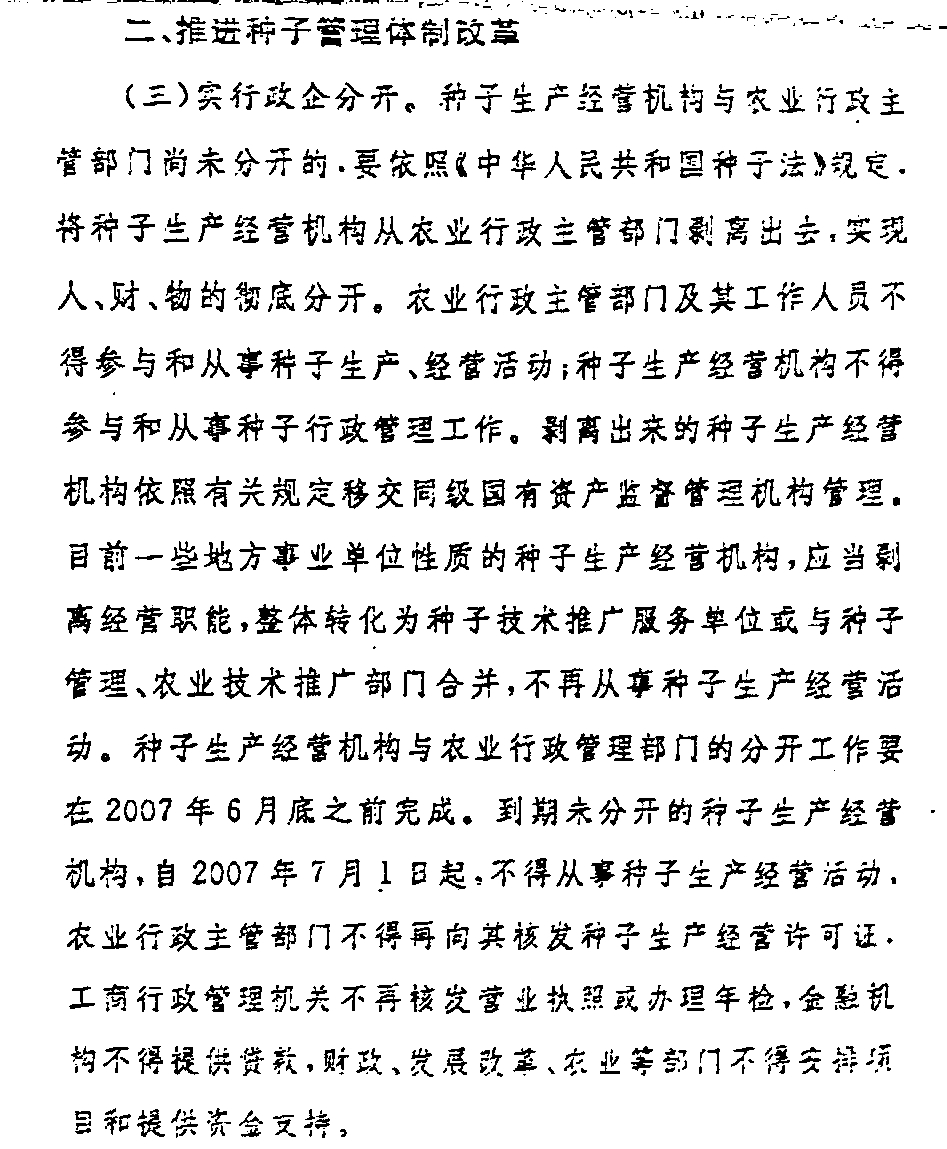 二、推进种子管理体制改革
（三）实行政企分开。种子生产经营机构与农业行政主
管部门尚未分开的，要依照《中华人民共和国种子法》规定，
将种子生产经营机构从农业行政主管部门剥离出去，实现
人、财、物的彻底分开。农业行政主管部门及其工作人员不
得参与和从事种子生产、经营活动；种子生产经营机构不得
参与和从事种子行政管理工作。剥离出来的种子生产经营
机构依照有关规定移交同级国有资产监督管理机构管理。
目前一些地方事业单位性质的种子生产经营机构，应当剥
离经营职能，整体转化为种子技术推广服务单位或与种子
管理、农业技术推广部门合并，不再从事种子生产经营活
动。种子生产经营机构与农业行政管理部门的分开工作要
在2007年6月底之前完成。到期未分开的种子生产经营
机构，自2007年7月1日起，不得从事种子生产经营活动，
农业行政主管部门不得再向其核发种子生产经营许可证，
工商行政管理机关不再核发营业执照或办理年检，金融机
构不得提供贷款，财政、发展改革、农业等部门不得安排项
目和提供资金支持。